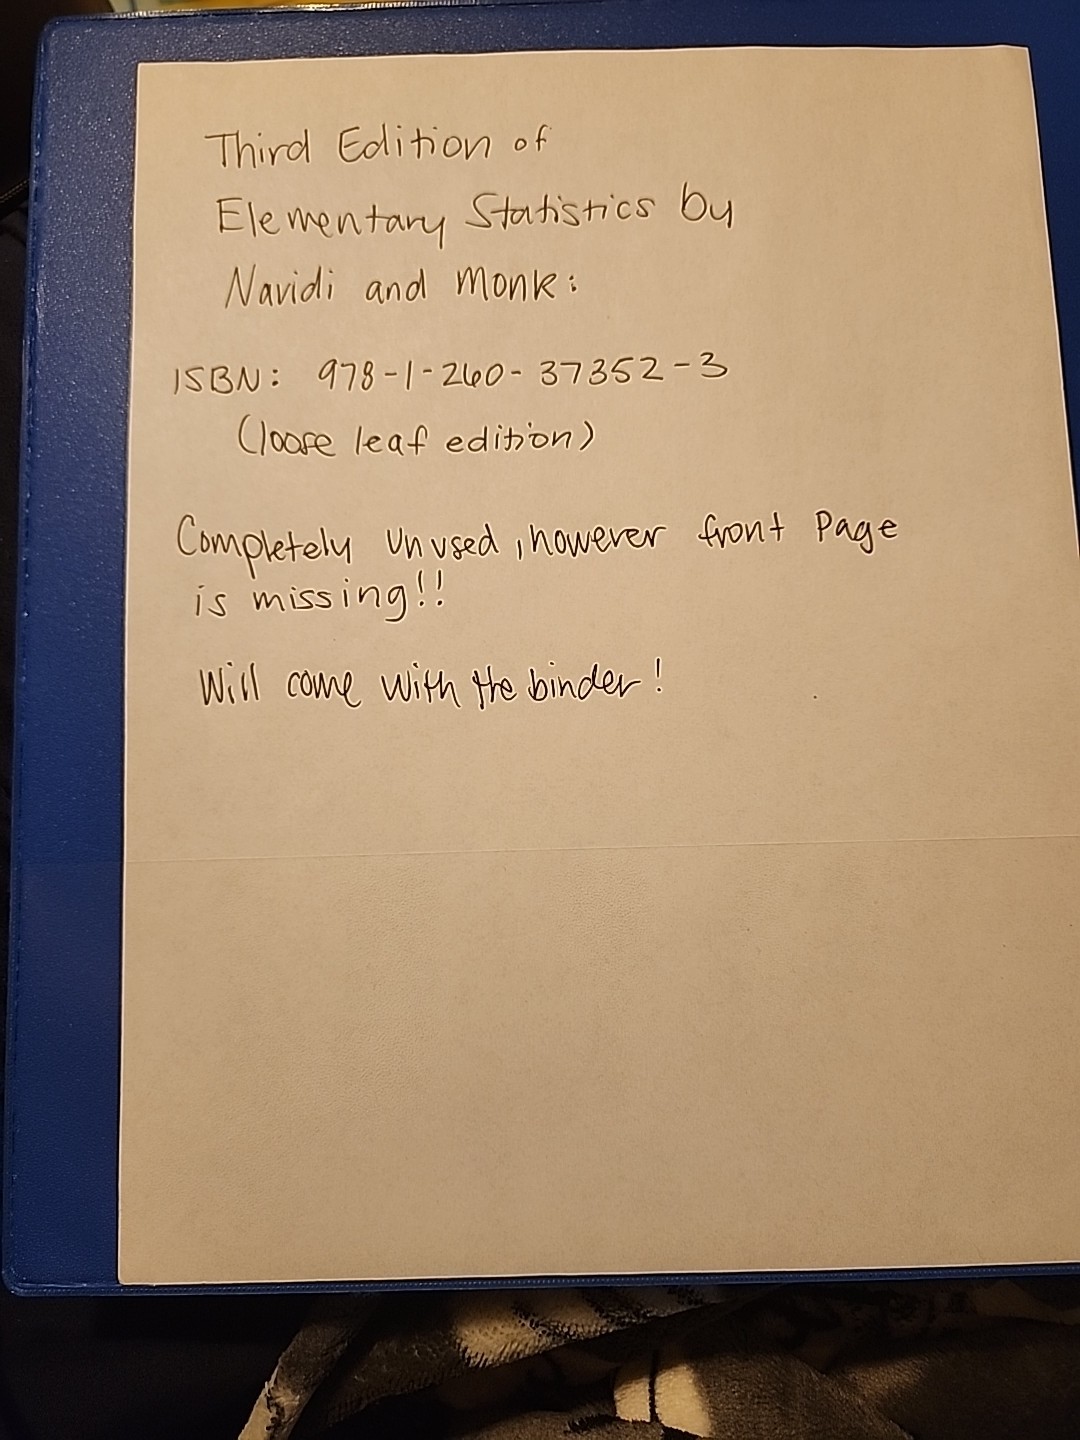 Third Edition of
Elementary Statistics by
Navidi and Monk:
ISBN: 978-1-260-37352-3
(loose leaf edition)
Completely Unused, however front Page
is missing!!
Will come with the binder!